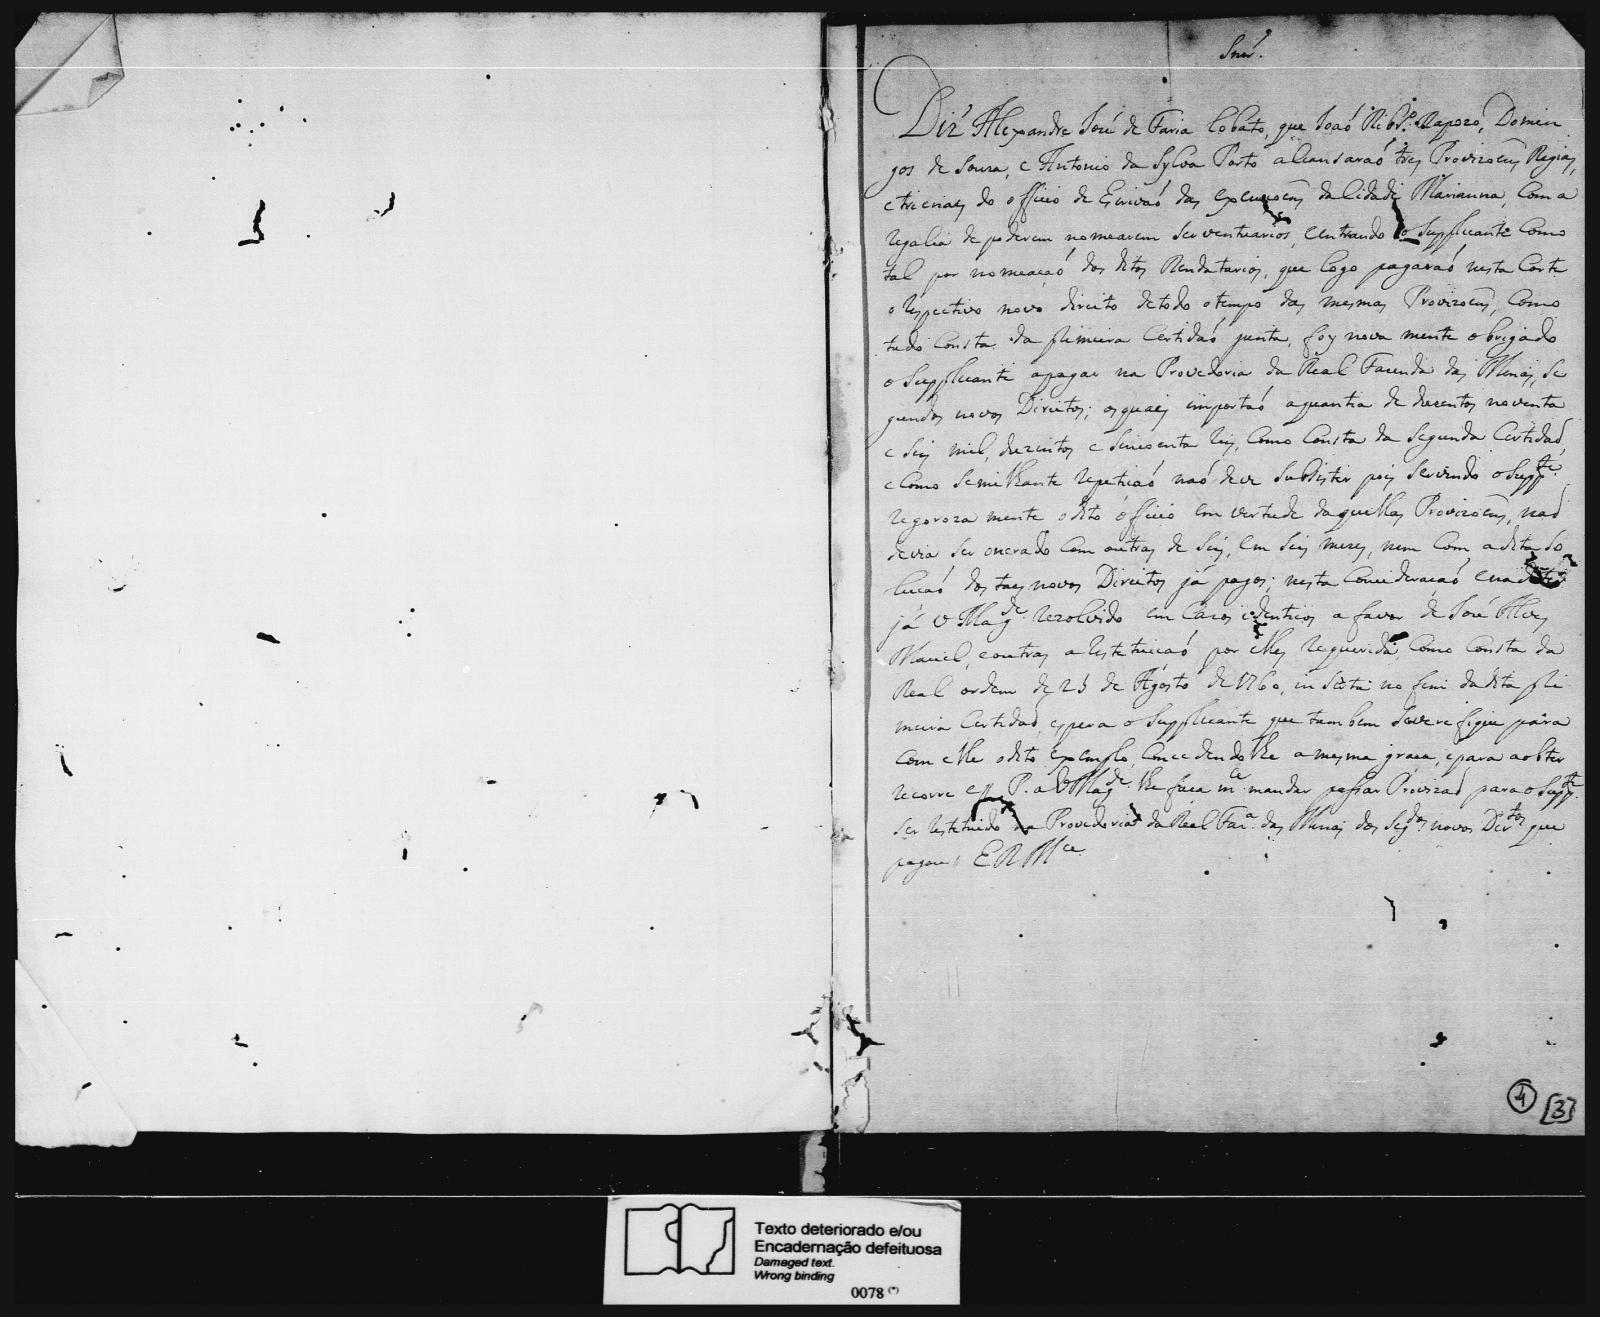 Snr.
Diz Alexandre José de Faria Lobato, que Joaó Ribr.o Rapozo, Domin
gos de Souza, e Antonio da Sylva Porto alcansaraó tres Provizoens Regias,
e trienaes do officio de Escrivaó das execusoens da Cidade Marianna, com a
regalia de poderem nomearem serventuarios, e entrando o Supplicante como
tal por nomeaçaó dos ditos Rendatarios, que logo pagaraó nesta Corte
o respectivo novo direito de todo o tempo das mesmas Provizoens, como
tudo consta da primeira Certidaó junta, foy nova mente obrigado
o Supplicante apagar na Provedoria da Real Fazenda das Minas, se
gundos novos Direitos; os quaes importaó a quantia de duzentos noventa
e seis mil, duzentos e sincoenta reis, como consta da segunda Certidaó,
e como semilhante repetiçaó naó deve subsistir pois servindo o Supp.te
regoroza mente o dito officio em vertude daquellas Provizoens, naó
devia ser onerado com outras de seis, em seis mezes, nem com a dita so
luçaó dos taes novos Direitos já pagos; nesta consideraçaó
já V Mag.de rezolvido em cazos identicos a favor de José Alves
Maciel, e outros a restetuiçaó por elles requerida, como consta da
Real ordem de 23 de Agosto de 1760, inserta no fim da dita pri
meira Certidaó, espera o Supplicante que tambem se verefique para
com elle o dito exemplo, concedendo lhe a mesma graça, e para a obter
recorre e // P. a V Mag.de lhe faça m.ce mandar passar Provizaó para o Supp.te
ser restetuido na Provedoria da Real Faz.a das Minas dos seg.dos novos Dir.tos que
pagou // E R M.ce
4 [3]
Texto deteriorado e/ou
Encadernação defeituosa
Damaged text.
Wrong binding
0078 (*)